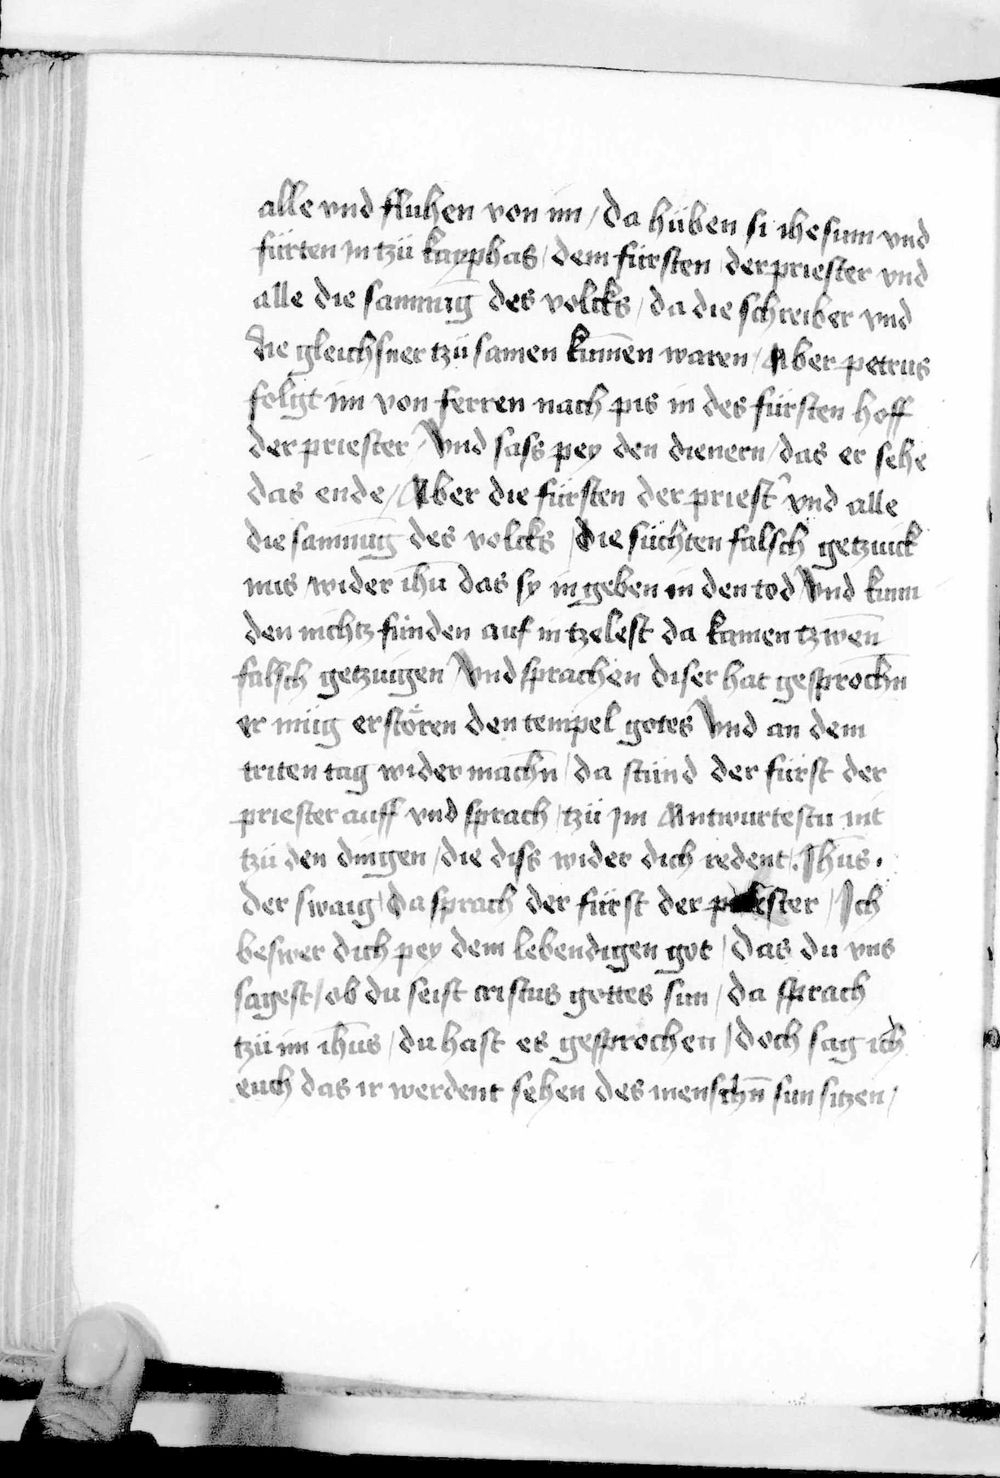 alle vnd fluhen von im / da hůben si ihesum vnd
fürten in tzü kayphas / dem fürsten / der priester vnd
alle die samnūg des volcks / da die schreiber vnd
die gleichsner tzü samen kumēn waren / Aber petrus
folgt im von ferren nach pis in des fürsten hoff
der priester / Vnd sass pey den dienern / das er sehe
das ende / Aber die fürsten der priest' vnd alle
die samnūg des volcks / die süchten falsch getzuick
nus / wider ihū das sy in geben in den tod / Vnd kunn
den nichtz fünden auf in tzelest da kamen tzwen̄
falsch getzuigen / Vnd sprachen diser hat gesproch̄n
er müg erstören den tempel gotes / Vnd an dem
triten tag wider mach̄n / da stünd der fürst der
priester auff vnd sprach / tzü im Antwurtestu nit
tzü den dingen / die diss wider dich redent . Jhūs .
der swaig / da sprach der fürst der priester / Ich
beswer dich pey dem lebendigen got / das du vns
sagest / ob du seist cristus gottes sun / da sprach
tzü im ihūs / du hast es gesprochen / doch sag ich
euch das ir werdent sehen des mensch̄n sun sitzen /